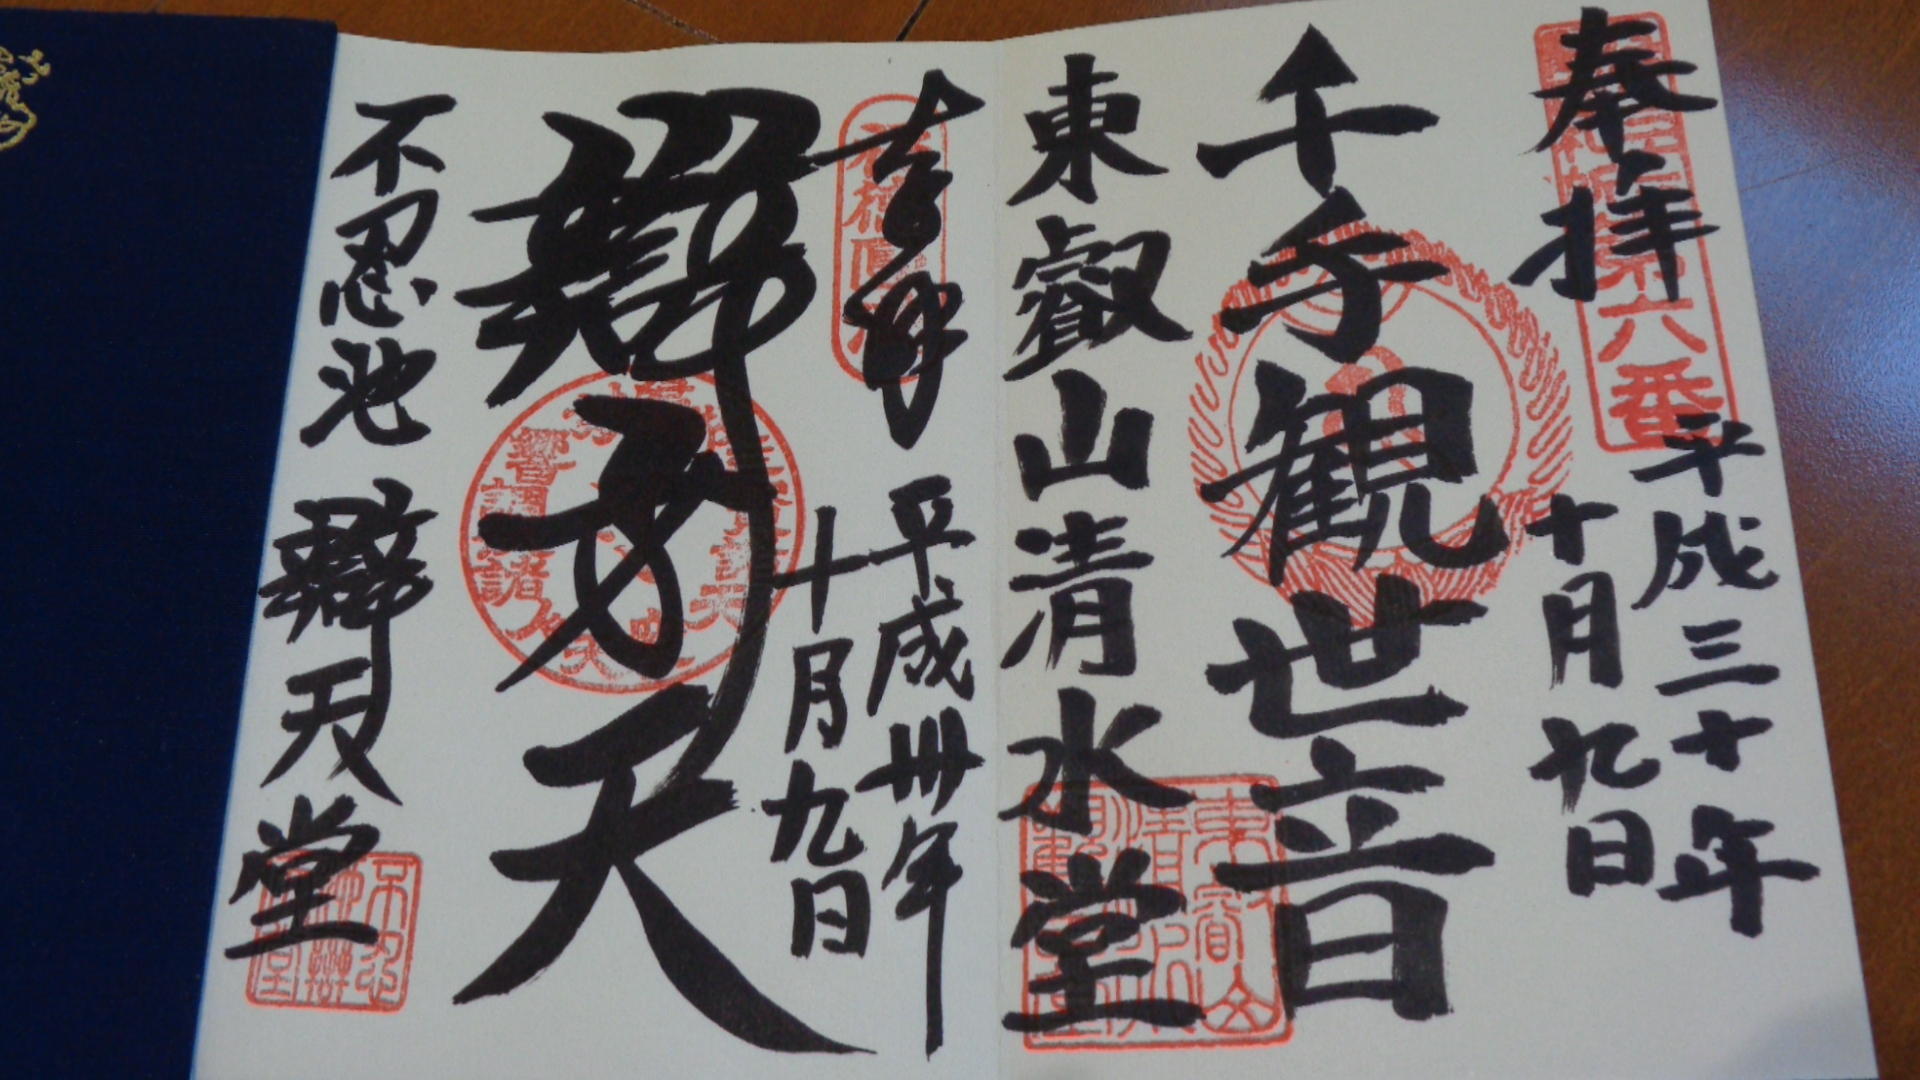 奉拝
平成三十年
十月九日
千手観世音
東叡山清水堂
奉拝
平成卅年
十月九日
辯才天
不忍池
辯天堂